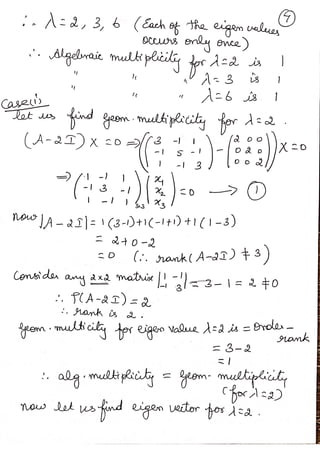 4
∴ λ = 2, 3, 6 (Each of the eigen values
occurs only once)
∴ Algebraic multiplicity for λ=2 is 1
" " λ=3 is 1
" " λ=6 is 1
Case(i)
let us find geom. multiplicity for λ=2.
(A-2I) X = 0 ⇒ ((3 -1 1 / -1 5 -1 / 1 -1 3) - (2 0 0 / 0 2 0 / 0 0 2)) X = 0
⇒ (1 -1 1 / -1 3 -1 / 1 -1 1)3x3 (x1 / x2 / x3) = 0 → 1
now |A-2I| = 1(3-1)+1(-1+1)+1(1-3)
= 2+0-2
= 0 (∴ rank(A-2I) ≠ 3)
Consider any 2x2 matrix |1 -1 / -1 3| = 3-1 = 2 ≠ 0
∴ ρ(A-2I) = 2
∴ rank is 2.
geom. multicity for eigen value λ=2 is = order -
rank
= 3-2
= 1
∴ alg. multiplicity = geom. multiplicity
(for λ=2)
now let us find eigen vector for λ=2.